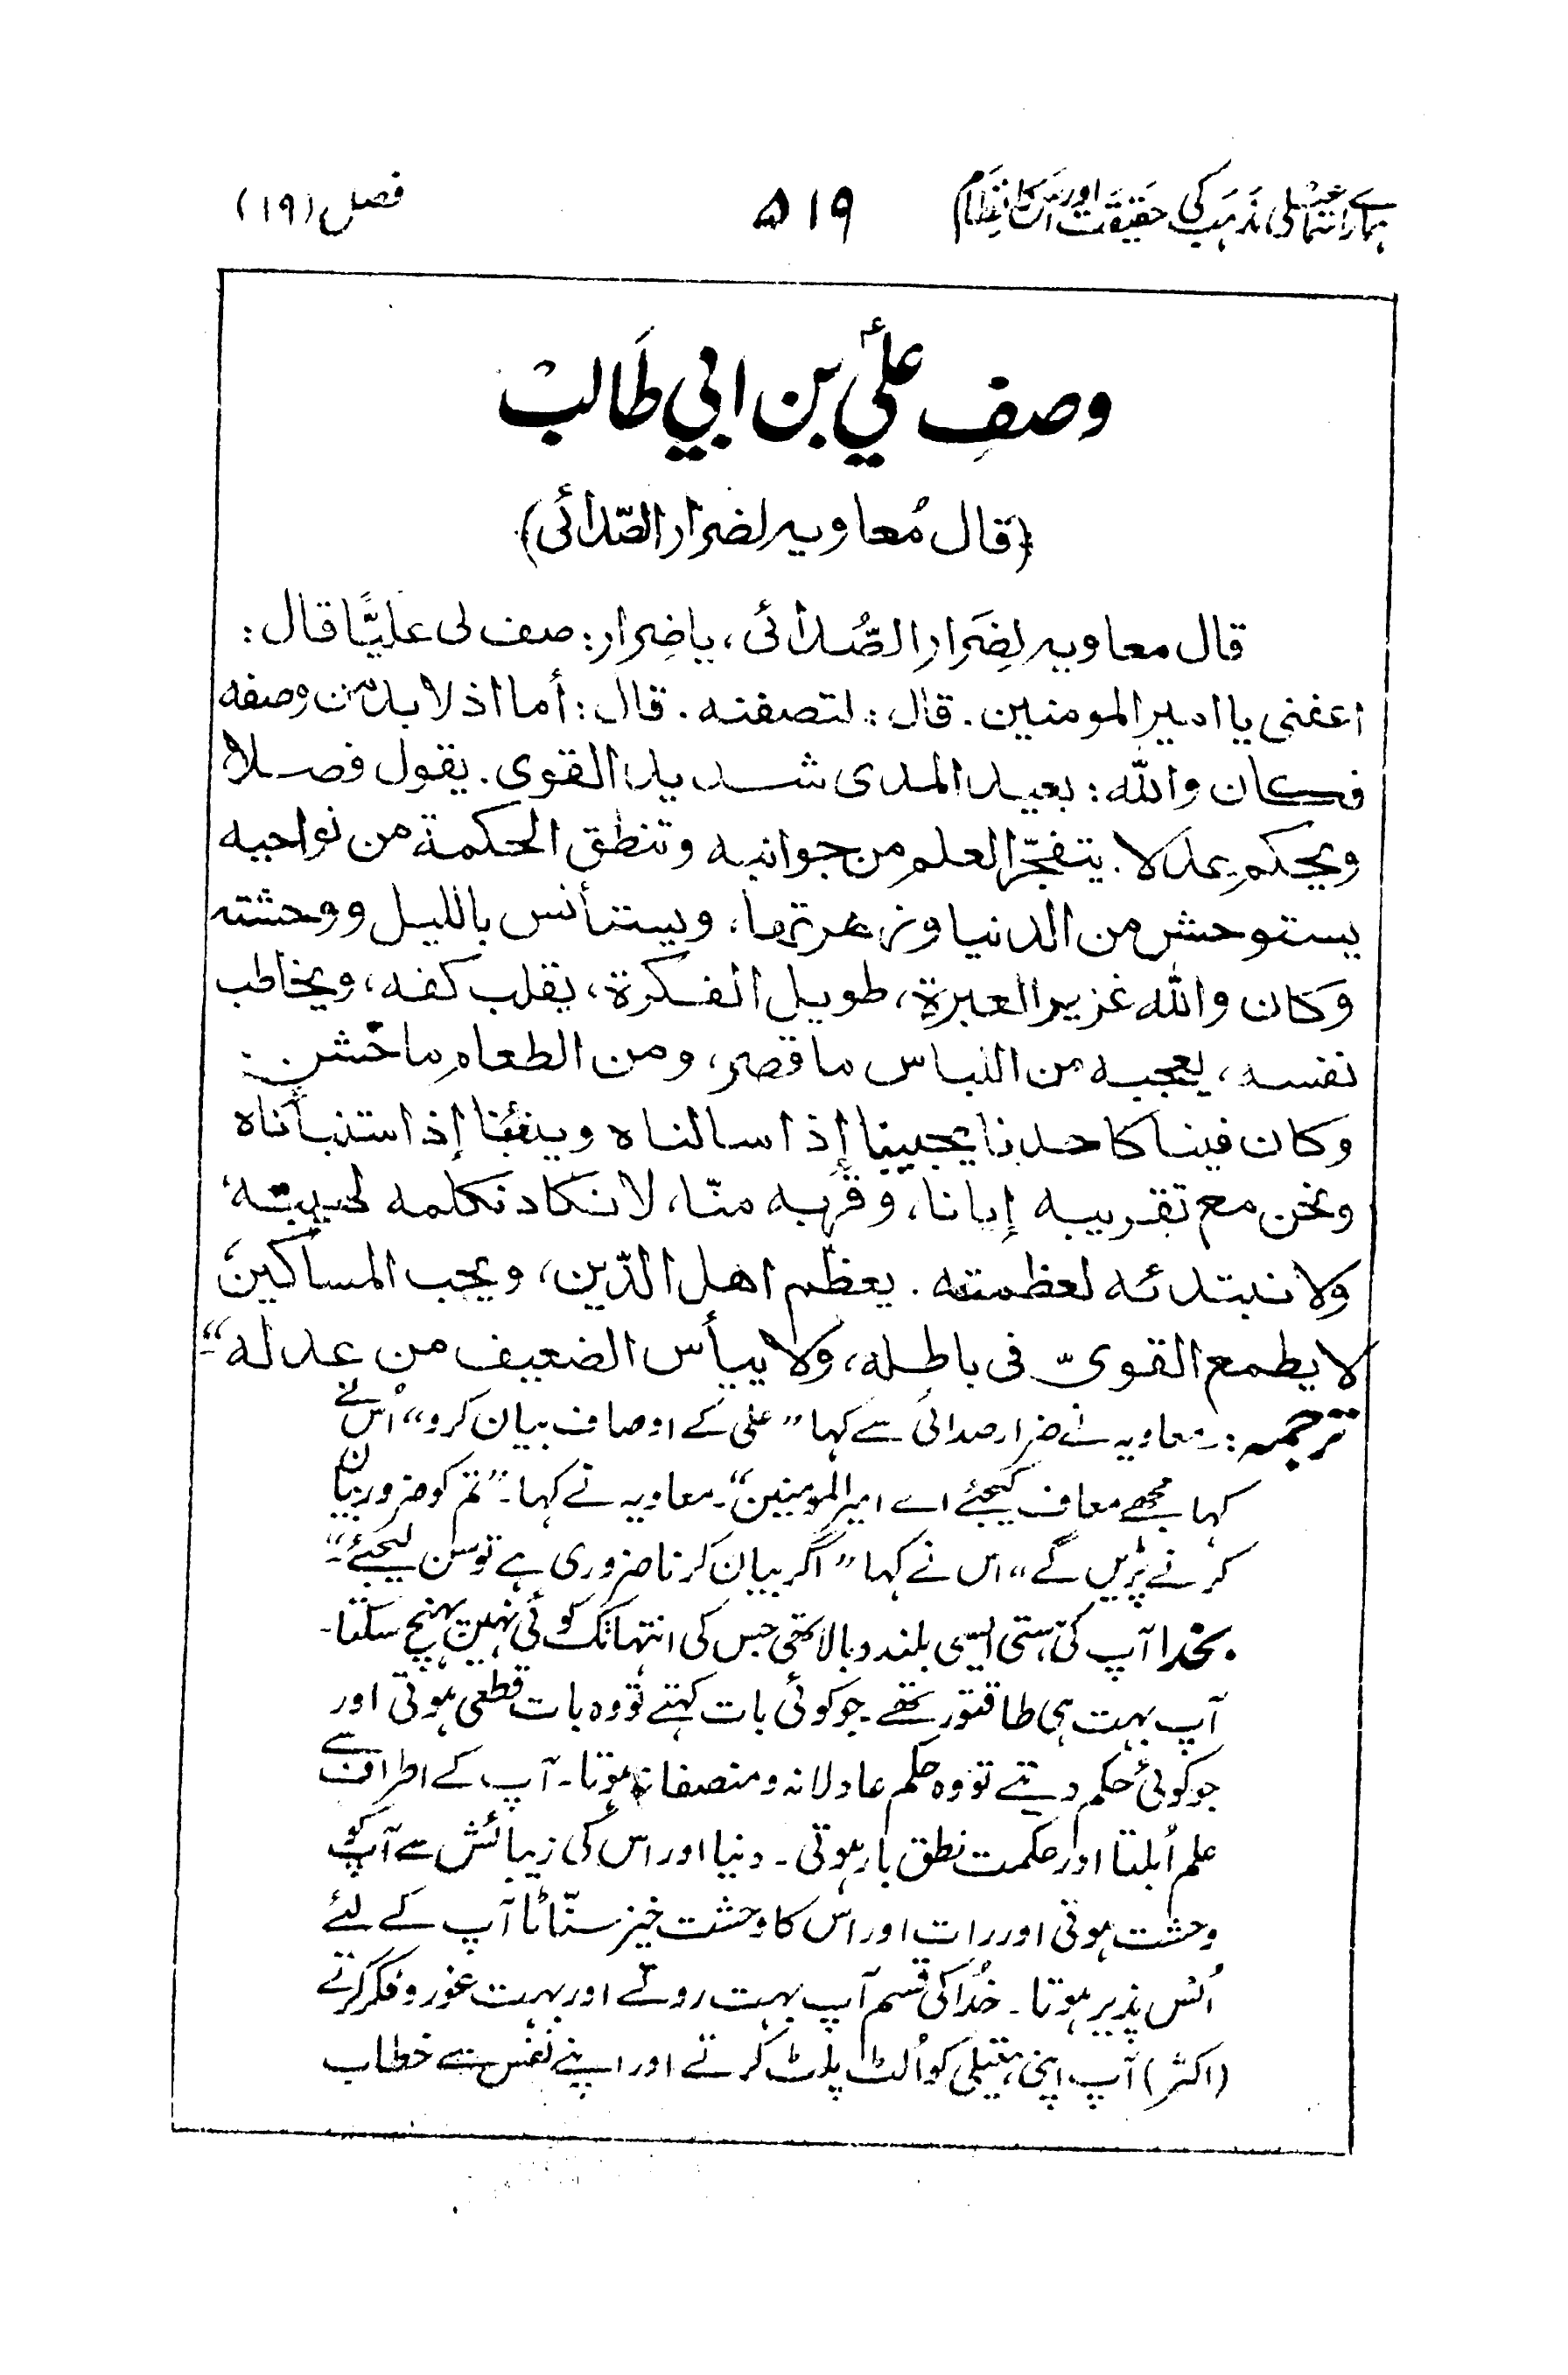 ہمارے اسماعیلی مذہب کی حقیقت اور اس کا نظام ۵۱۹ فصل (۱۹)
وصف علیؑ بن ابي طالب
(قال معاویہ لضرار الصّدائی)
قال معاویہ لضَرار الصُّدائی، یا ضِرار: صف لی علیًّا قال:
اعفنی یا امیر المومنین. قال: لتصفنه. قال: أما اذ لا بد من وصفه
فکان والله: بعید المدی شدید القوی. یقول فصلا
ویحکم عدلا. یتفجّر العلم من جوانبه وتنطق الحکمة من نواحیه
یستوحش من الدنیا وزهرتها، ویستأنس باللیل ووحشته
وکان والله غزیر العبرة، طویل الفکرة، یقلب کفه، ویخاطب
نفسه، یعجبه من اللباس ما قصر، ومن الطعام ما خشن.
وکان فینا کاحدنا یجیبنا إذا سالناه وینبئنا إذا استنبأناه
ونحن مع تقریبه إیانا، وقربه منّا، لا نکاد نکلمه لهیبته
ولا نبتدئه لعظمته. یعظّم اهل الدّین، ویحب المساکین
لا یطمع القویّ فی باطله، ولا ییأس الضعیف من عدله“۔
ترجمہ:۔ معاویہ نے ضرار صدائی سے کہا ”علی کے اوصاف بیان کرو“ اُس نے
کہا مجھے معاف کیجئے اے امیر المومنین“۔ معاویہ نے کہا۔ ”تم کو ضرور بیان
کرنے پڑیں گے“ اس نے کہا ”اگر بیان کرنا ضروری ہے تو سن لیجئے“۔
بخدا آپ کی ہستی ایسی بلند و بالا تھی جس کی انتہا تک کوئی نہیں پہنچ سکتا۔
آپ بہت ہی طاقتور تھے۔ جو کوئی بات کہتے تو وہ بات قطعی ہوتی اور
جو کوئی حکم دیتے تو وہ حکم عادلانہ و منصفانہ ہوتا۔ آپ کے اطراف سے
علم اُبلتا اور حکمت نطق بار ہوتی۔ دنیا اور اس کی زیبائش سے آپ کو
وحشت ہوتی اور رات اور اس کا وحشت خیز سنّاٹا آپ کے لئے
اُنس پذیر ہوتا۔ خُدا کی قسم آپ بہت روتے اور بہت غور و فکر کرتے
(اکثر) آپ اپنی ہتیلی کو اُلٹ پلٹ کرتے اور اپنے نفس سے خطاب